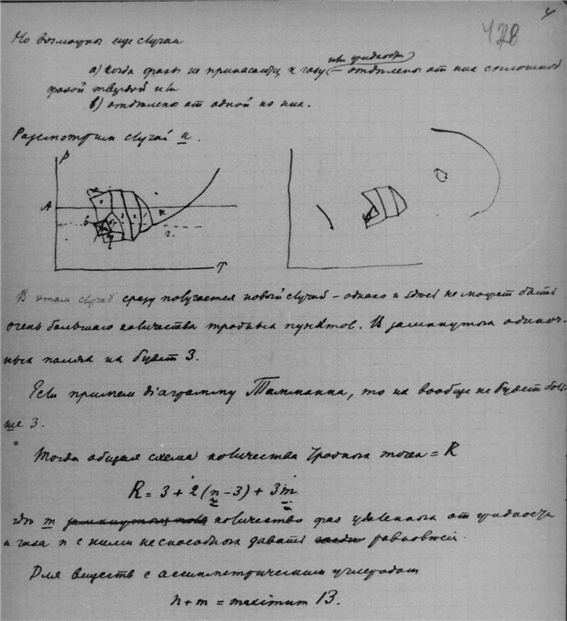 42В
Но возможны еще случаи
или жидкости
а) когда фазы не прикасающ. к газу отделены от них сплошной
фазой твердой или
в) отделены от одной из них.
Разсмотрим случай а.
P
A
T
В этом случае сразу получается новый случай – однако и здесь не может быть
очень большого количества тройных пунктов. В замкнутом одиноч-
ных полях их будет 3.
Если примем діаграмму Таммана, то их вообще не будет боль-
ше 3.
Тогда общая схема количества тройных точек = R
R = 3 + 2(n-3) + 3m
где m количество фаз удаленных от жидкости
и газа и с ними неспособных давать равновесей.
Для веществ с ассиметрическим углеродом
n + m = maximum 13.